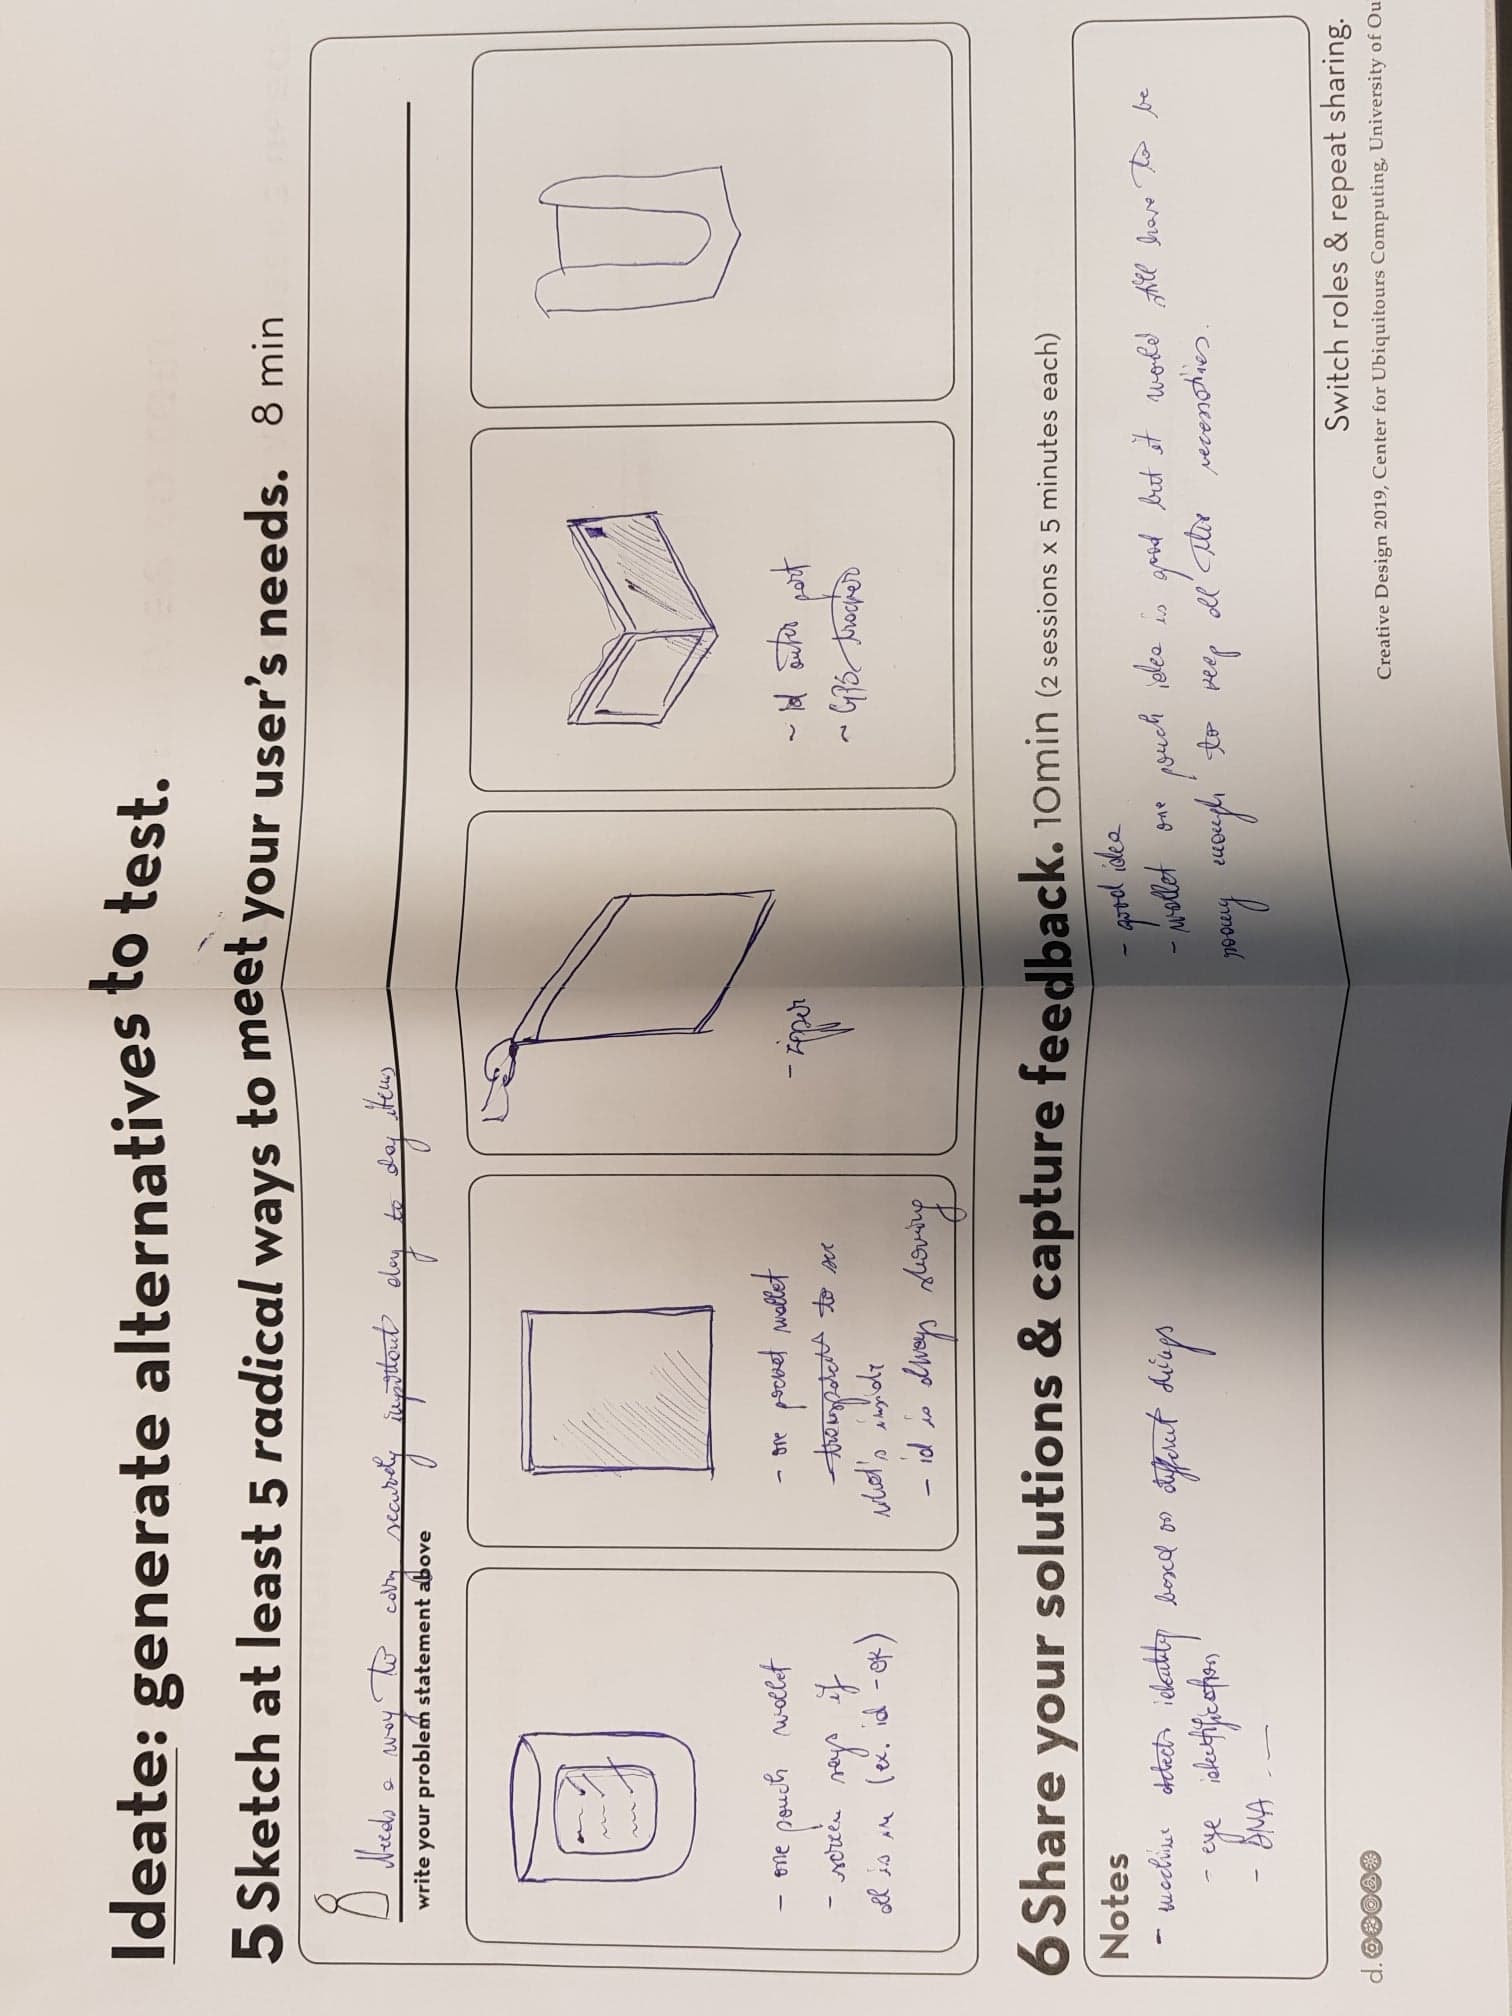 Ideate: generate alternatives to test.
5 Sketch at least 5 radical ways to meet your user's needs. 8 min
Needs a way to carry securely important day to day items
write your problem statement above
- one pouch wallet
- screen says if
all is in (ex. id - ok)
- one pocket wallet
- transparent to see
what's inside
- id is always showing
- zipper
~ id outer part
~ GPS tracker
6 Share your solutions & capture feedback. 10min (2 sessions x 5 minutes each)
Notes
- machine detects identity based on different things
- eye identification
- DNA
- good idea
- wallet one pouch idea is good but it would still have to be
roomy enough to keep all the necessities.
Switch roles & repeat sharing.
d.
Creative Design 2019, Center for Ubiquitours Computing, University of Ou